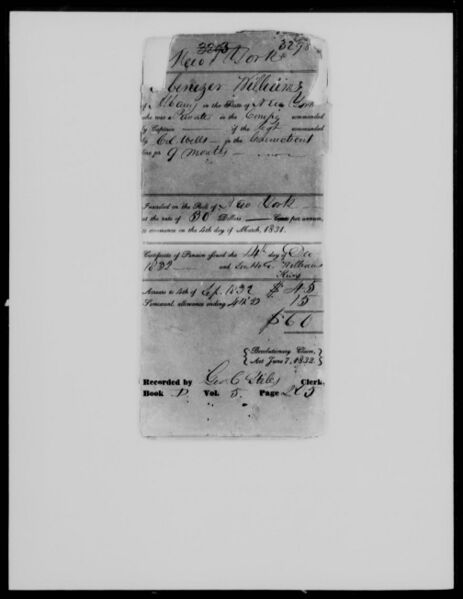 3263 3298
New York
Ebenezer Williams
of Albany in the State of New York
who was a Private in the Company commanded
by Captain of the Regt commanded
by Col Wells in the Connecticut
line for 9 months
Inscribed on the Roll of New York
at the rate of 30 Dollars Cents per annum,
to commence on the 4th day of March, 1831.
Certificate of Pension issued the 14th day of Dec
1832 and
Arrears to 4th of Sep. 1832 $45
Semi-anl. allowance ending 15
$60
{Revolutionary Claim,
Act June 7, 1832.}
Recorded by Geo. C. Stiles Clerk,
Book D Vol. 5 Page